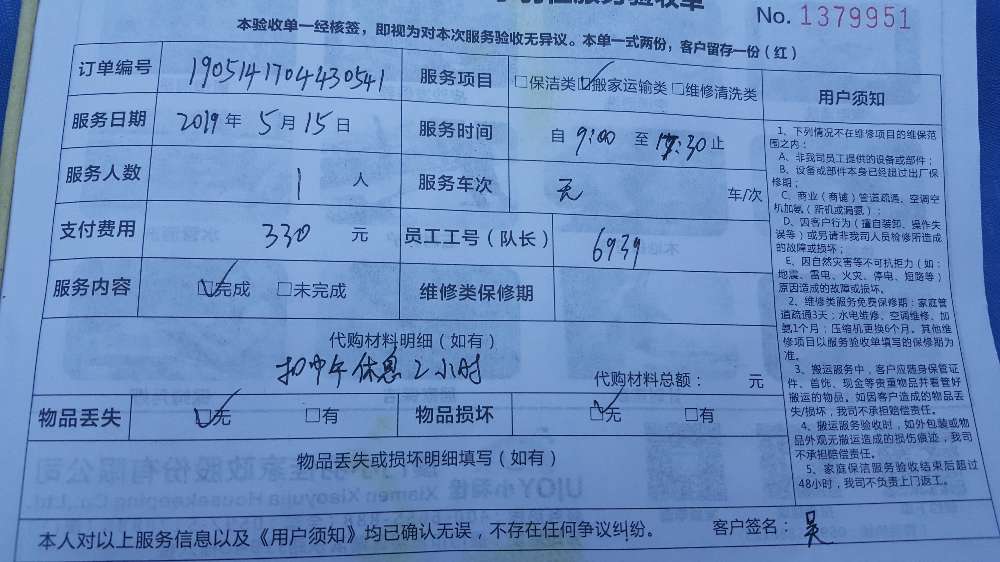 服务验收单
No. 1379951
本验收单一经核签，即视为对本次服务验收无异议。本单一式两份，客户留存一份（红）
订单编号 190514170443 0541 服务项目 □保洁类 ☑搬家运输类 □维修清洗类 用户须知
服务日期 2019年 5月 15日 服务时间 自 9:00 至 17:30 止
服务人数 1 人 服务车次 无 车/次
支付费用 330 元 员工工号（队长） 6939
服务内容 ☑完成 □未完成 维修类保修期
代购材料明细（如有）
扣中午休息2小时 代购材料总额： 元
物品丢失 ☑无 □有 物品损坏 ☑无 □有
物品丢失或损坏明细填写（如有）
本人对以上服务信息以及《用户须知》均已确认无误，不存在任何争议纠纷。 客户签名：吴
1、下列情况不在维修项目的维保范
围之内：
A、非我司员工提供的设备或部件；
B、设备或部件本身已经超过出厂保
修期；
C、商业（商铺）管道疏通、空调空
机加氨（新机或漏氨）；
D、因客户行为（擅自装卸、操作失
误等）或另请非我司人员检修所造成
的故障或损坏；
E、因自然灾害等不可抗拒力（如：
地震、雷电、火灾、停电、短路等）
原因造成的故障或损坏。
2、维修类服务免费保修期：家庭管
道疏通3天；水电维修、空调维修、加
氨1个月；压缩机更换6个月。其他维
修项目以服务验收单填写的保修期为
准。
3、搬运服务中，客户应随身保管证
件、首饰、现金等贵重物品并看管好
搬运的物品。如因客户造成的物品丢
失/损坏，我司不承担赔偿责任。
4、搬运服务验收时，如外包装或物
品外观无搬运造成的损伤痕迹，我司
不承担赔偿责任。
5、家庭保洁服务验收结束后超过
48小时，我司不负责上门返工。